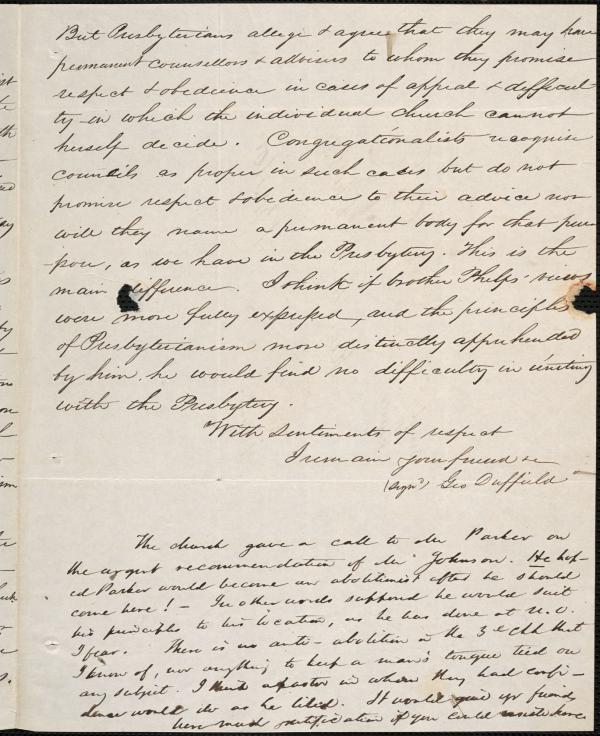 But Presbyterians allege & agree that they may have
permanent counsellors & advisers to whom they promise
respect & obedience in cases of appeal & difficul-
ty in which the individual church cannot
herself decide. Congregationalists recognise
councils as proper in such cases but do not
promise respect & obedience to their advice nor
will they name a permanent body for that pur-
pose, as we have in the Presbytery. This is the
main difference. I think if brother Phelps' views
were more fully expressed, and the principles
of Presbyterianism more distinctly apprehended
by him, he would find no difficulty in uniting
with the Presbytery.
With sentiments of respect
I remain your friend &c
(sign^d) Geo Duffield
The church gave a call to Mr Parker on
the urgent recommendation of Mr Johnson. He hop-
ed Parker would become an abolitionist after he should
come here! - In other words supposed he would suit
his principles to his location, as he has done at N.O.
I fear. There is no anti-abolition in the 3^d Chh that
I know of, nor anything to keep a man's tongue tied on
any subject. I think a pastor in whom they had confi-
dence would do as he liked. It would give yr friends
here much gratification if you could unite here